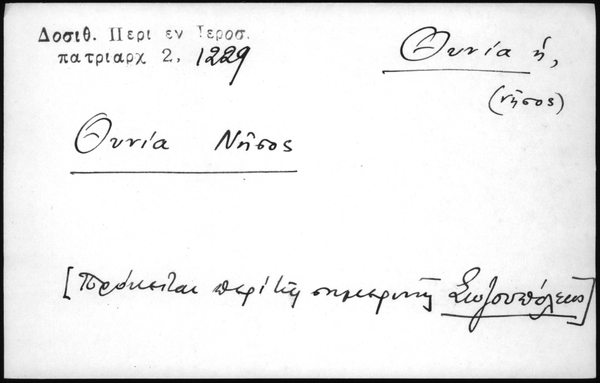 Δοσιθ. Περι εν Ιεροσ.
πατριαρχ 2, 1229
Θυνία ἡ,
(νῆσος)
Θυνία Νῆσος
[Πρόκειται περί τῆς σημερινῆς Σωζουπόλεως]